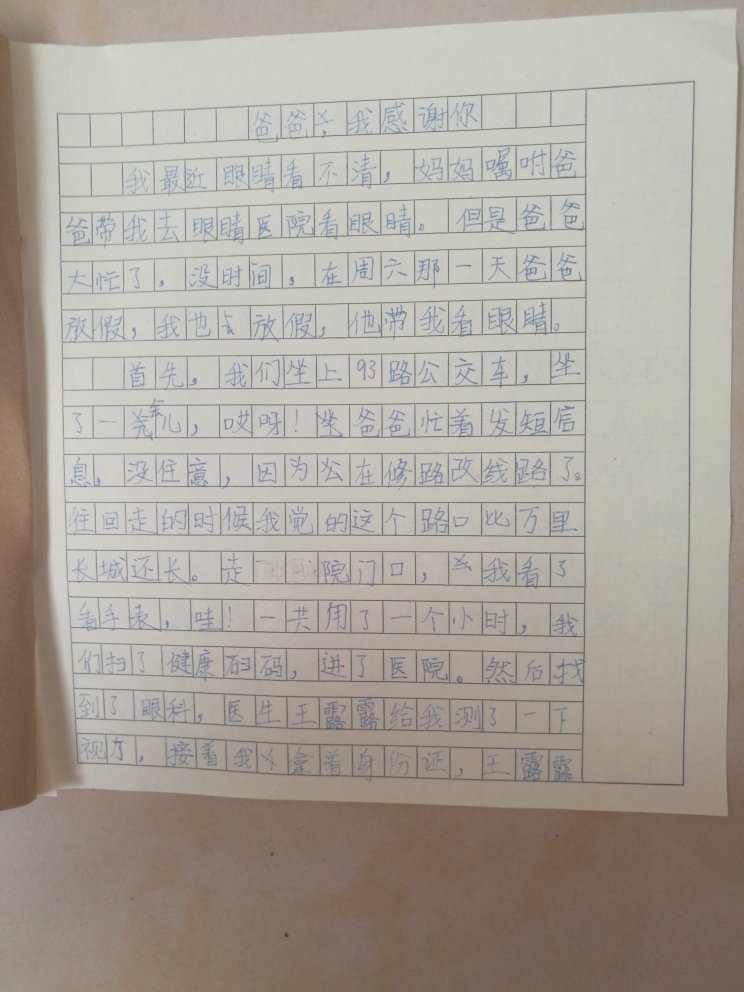 爸爸，我感谢你
我最近眼睛看不清，妈妈嘱咐爸
爸带我去眼睛医院看眼睛。但是爸爸
大忙了，没时间，在周六那一天爸爸
放假，我也放假，他带我看眼睛。
首先，我们坐上93路公交车，坐
了一会儿，哎呀！爸爸忙着发短信
息，没住意，因为公在修路改线路了。
往回走的时候我觉的这个路口比万里
长城还长。走院门口，我看了
看手表，哇！一共用了一个小时，我
们扫了健康码，进了医院。然后找
到了眼科，医生王露露给我测了一下
视力，接着我拿着身份证，王露露